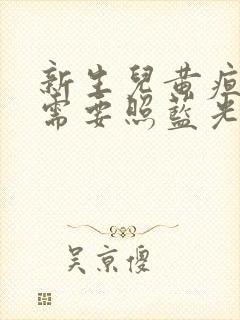 新生兒黃疸
需要照藍光
吳京傻